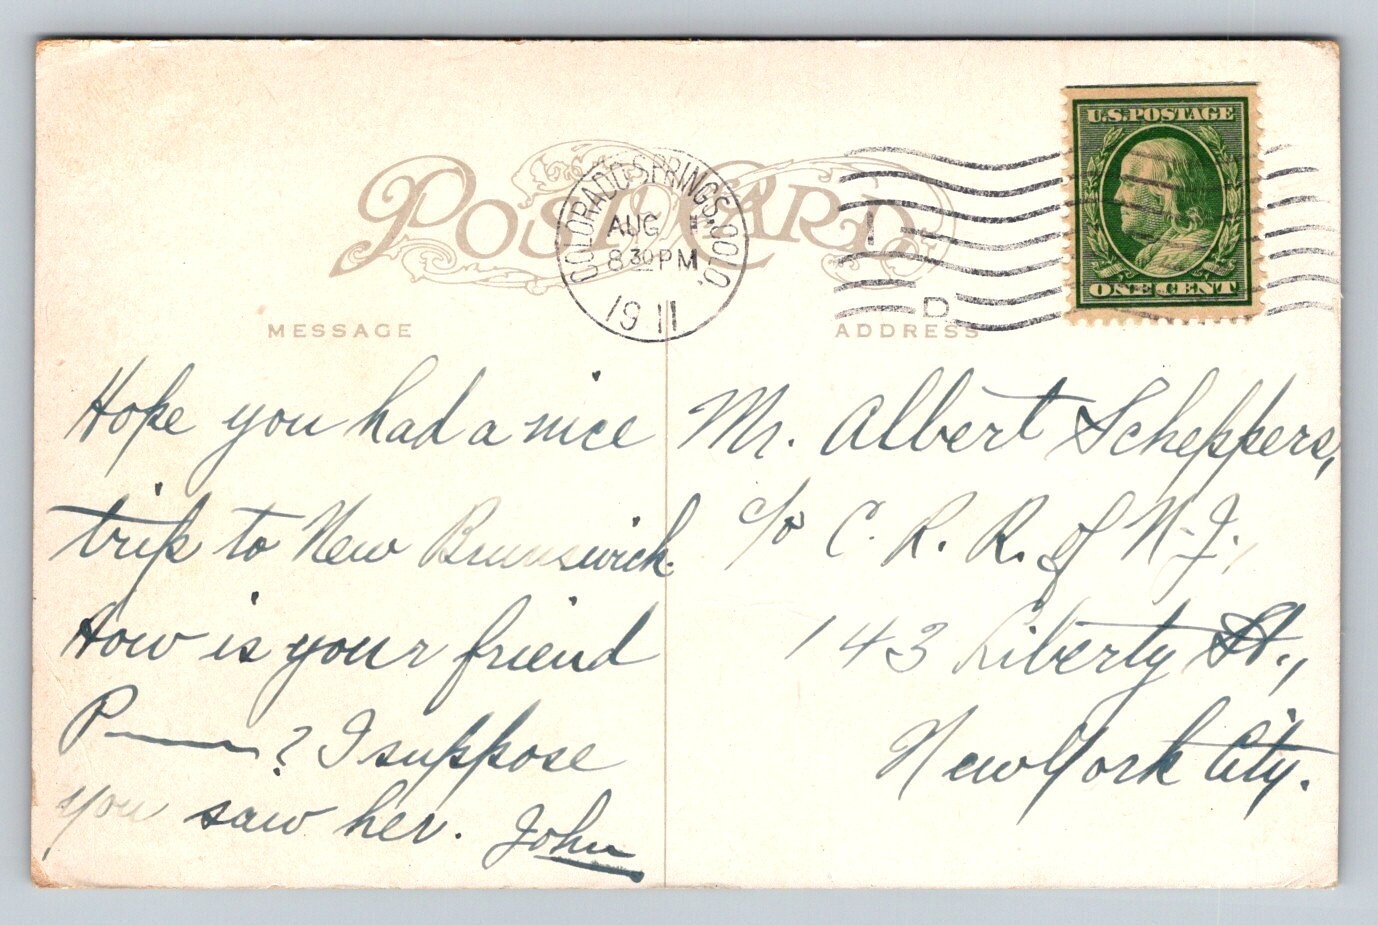 POST CARD
COLORADO SPRINGS, COLO.
AUG
8 30 PM
1911
1
D
U.S. POSTAGE
ONE CENT
MESSAGE
ADDRESS
Hope you had a nice
trip to New Brunswick.
How is your friend
P——? I suppose
you saw her. John
Mr. Albert Scheppers,
c/o C. R. R. of N. J.,
143 Liberty St.,
New York City.